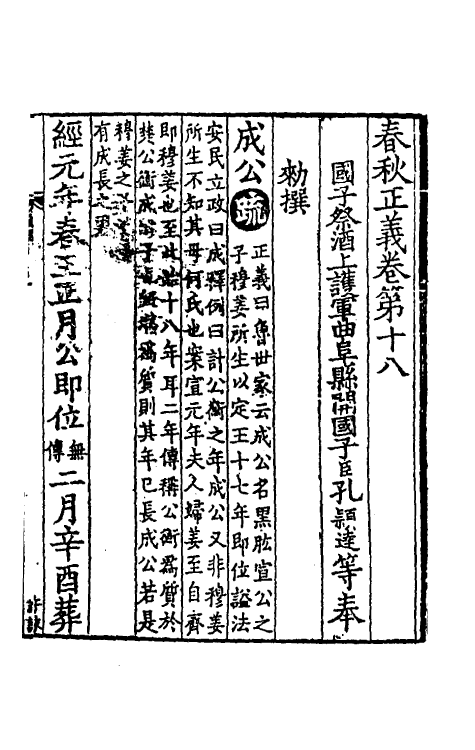 春秋正義卷第十八
國子祭酒上護軍曲阜縣開國子臣孔穎達等奉
勑撰
成公疏正義曰魯世家云成公名黑肱宣公之
子穆姜所生以定王十七年即位謚法
安民立政曰成釋例曰計公衡之年成公又非穆姜
所生不知其母何氏也案宣元年夫人婦姜至自齊
即穆姜也至此始十八年耳二年傳稱公衡爲質於
楚公衡成公子也旣堪爲質則其年已長成公若是
穆姜之子未得
有成長之男
經元年春王正月公即位無傳二月辛酉葬